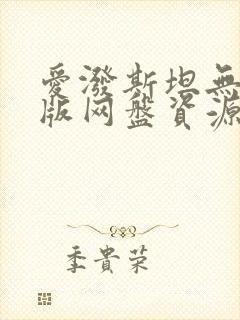 愛潑斯坦無
版网盤資源
季貴荣